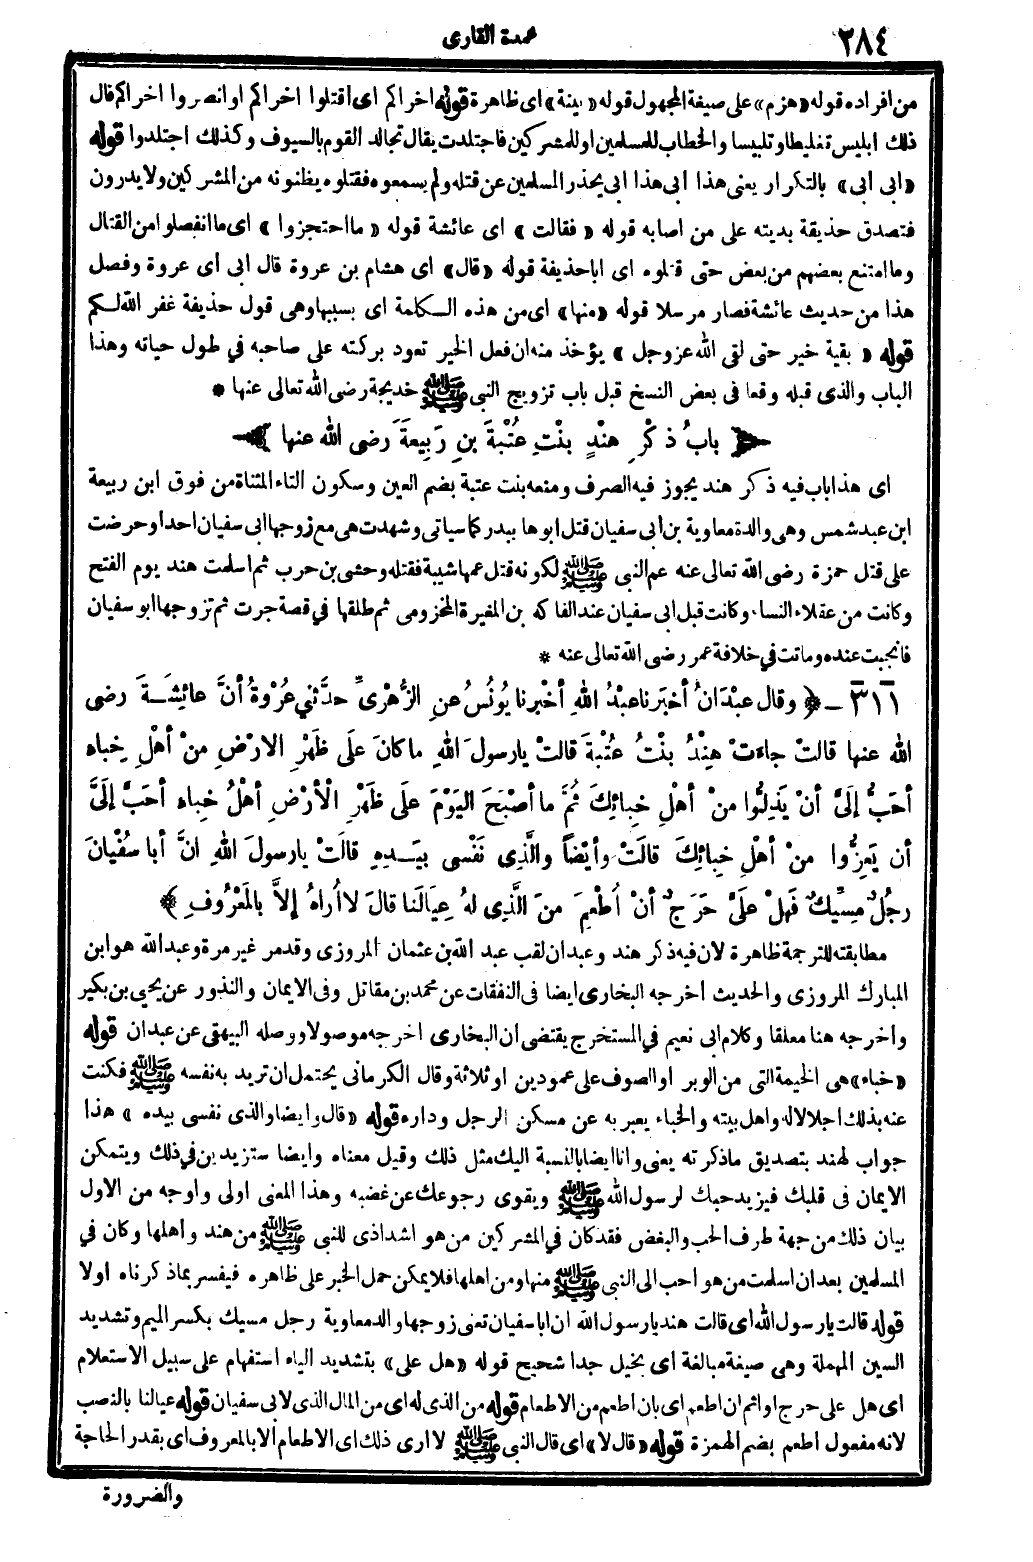 ٢٨٤
عمدة القارى
من افراده قوله «هزم» على صيغة المجهول قوله «بينة» اى ظاهرة قوله اخراكم اى اقتلوا اخراكم او انصروا اخراكم قال
ذلك ابليس تغليطا وتلبيسا والخطاب للمسلمين او للمشركين فاجتلدت يقال تجالد القوم بالسيوف وكذلك اجتلدوا قوله
«ابى ابى» بالتكرار يعنى هذا ابى هذا ابى يحذر المسلمين عن قتله ولم يسمعوه فقتلوه يظنونه من المشركين ولا يدرون
فتصدق حذيفة بديته على من اصابه قوله «فقالت» اى عائشة قوله «ما احتجزوا» اى ما انفصلوا من القتال
وما امتنع بعضهم من بعض حتى قتلوه اى اباحذيفة قوله «قال» اى هشام بن عروة قال ابى أى عروة وفصل
هذا من حديث عائشة فصار مرسلا قوله «منها» اى من هذه الكلمة اى بسببها وهى قول حذيفة غفر الله لكم
قوله «بقية خير حتى لقى الله عز وجل» يؤخذ منه ان فعل الخير تعود بركته على صاحبه في طول حياته وهذا
الباب والذى قبله وقعا فى بعض النسخ قبل باب تزويج النبى ﷺ خديجة رضى الله تعالى عنها *
﴿ بابُ ذِكْرِ هِنْدٍ بِنْتِ عُتْبَةَ بنِ رَبِيعَةَ رضى الله عنها ﴾
اى هذا باب فيه ذكر هند يجوز فيه الصرف ومنعه بنت عتبة بضم العين وسكون التاء المثناة من فوق ابن ربيعة
ابن عبد شمس وهى والدة معاوية بن أبى سفيان قتل ابوها ببدر كما سياتى وشهدت هى مع زوجها ابى سفيان احدا وحرضت
على قتل حمزة رضى الله تعالى عنه عم النبى ﷺ لكونه قتل عمها شيبة فقتله وحشى بن حرب ثم اسلمت هند يوم الفتح
وكانت من عقلاء النساء وكانت قبل ابى سفيان عند الفاكه بن المغيرة المخزومى ثم طلقها في قصة جرت ثم تزوجها ابو سفيان
فانجبت عنده وماتت في خلافة عمر رضى الله تعالى عنه *
٣١١ - ﴿ وقال عبْدَانُ أخْبَرَنا عبْدُ اللهِ أخْبرنا يُونُسُ عنِ الزُّهْرِىِّ حدَّثني عُرْوَةُ أنَّ عائِشَةَ رضى
الله عنها قالتْ جاءتْ هِنْدُ بِنْتُ عُتْبةَ قالتْ يارسولَ اللهِ ما كانَ علَى ظَهْرِ الارْضِ مِنْ أهْلِ خِباء
أحَبُّ إلَىَّ أنْ يَذِلُّوا مِنْ أهْلِ خِبائِكَ ثُمَّ ما أصْبَحَ اليَوْمَ علَى ظَهْرِ الْأرْضِ أهْلُ خِباء أحَبَّ إلَىَّ
أن يَعِزُّوا مِنْ أهْلِ خِبائِكَ قالَتْ وأيْضاً والَّذِى نَفْسى بيَدِهِ قالَتْ يارسولَ اللهِ انَّ أبا سُفْيانَ
رجُلٌ مِسِّيكٌ فهَلْ علَىَّ حَرَجٌ أنْ أُطْعِمَ مِنَ الَّذِى لهُ عِيَالَنا قالَ لا أُراهُ إلاَّ بالمَعْرُوفِ ﴾
مطابقته للترجمة ظاهرة لان فيه ذكر هند وعبدان لقب عبد الله بن عثمان المروزى وقد مر غير مرة وعبد الله هو ابن
المبارك المروزى والحديث اخرجه البخارى ايضا فى النفقات عن محمد بن مقاتل وفى الايمان والنذور عن يحيى بن بكير
واخرجه هنا معلقا وكلام ابى نعيم في المستخرج يقتضى ان البخارى اخرجه موصولا ووصله البيهقى عن عبدان قوله
«خباء» هى الخيمة التى من الوبر او الصوف على عمودين او ثلاثة وقال الكرمانى يحتمل ان تريد به نفسه ﷺ فكنت
عنه بذلك اجلالا له واهل بيته والخباء يعبر به عن مسكن الرجل وداره قوله «قال وايضا والذى نفسى بيده» هذا
جواب لهند بتصديق ما ذكرته يعنى وانا ايضا بالنسبة اليك مثل ذلك وقيل معناه وايضا ستزيدين في ذلك ويتمكن
الايمان فى قلبك فيزيد حبك لرسول الله ﷺ ويقوى رجوعك عن غضبه وهذا المعنى اولى واوجه من الاول
بيان ذلك من جهة طرف الحب والبغض فقد كان في المشركين من هو اشد اذى للنبى ﷺ من هند وأهلها وكان في
المسلمين بعد ان اسلمت من هو احب الى النبى ﷺ منها ومن اهلها فلا يمكن حمل الخبر على ظاهره فيفسر بماذكرناه اولا
قوله قالت يارسول الله أى قالت هند يارسول الله ان اباسفيان تعنى زوجها والد معاوية رجل مسيك بكسر الميم وتشديد
السين المهملة وهى صيغة مبالغة اى بخيل جدا شحيح قوله «هل على» بتشديد الياء استفهام على سبيل الاستعلام
اى هل على حرج او اثم ان اطعم اى بان اطعم من الاطعام قوله من الذى له اى من المال الذى لابى سفيان قوله عيالنا بالنصب
لانه مفعول اطعم بضم الهمزة قوله «قال لا» اى قال النبى ﷺ لا ارى ذلك اى الاطعام الا بالمعروف اى بقدر الحاجة
والضرورة